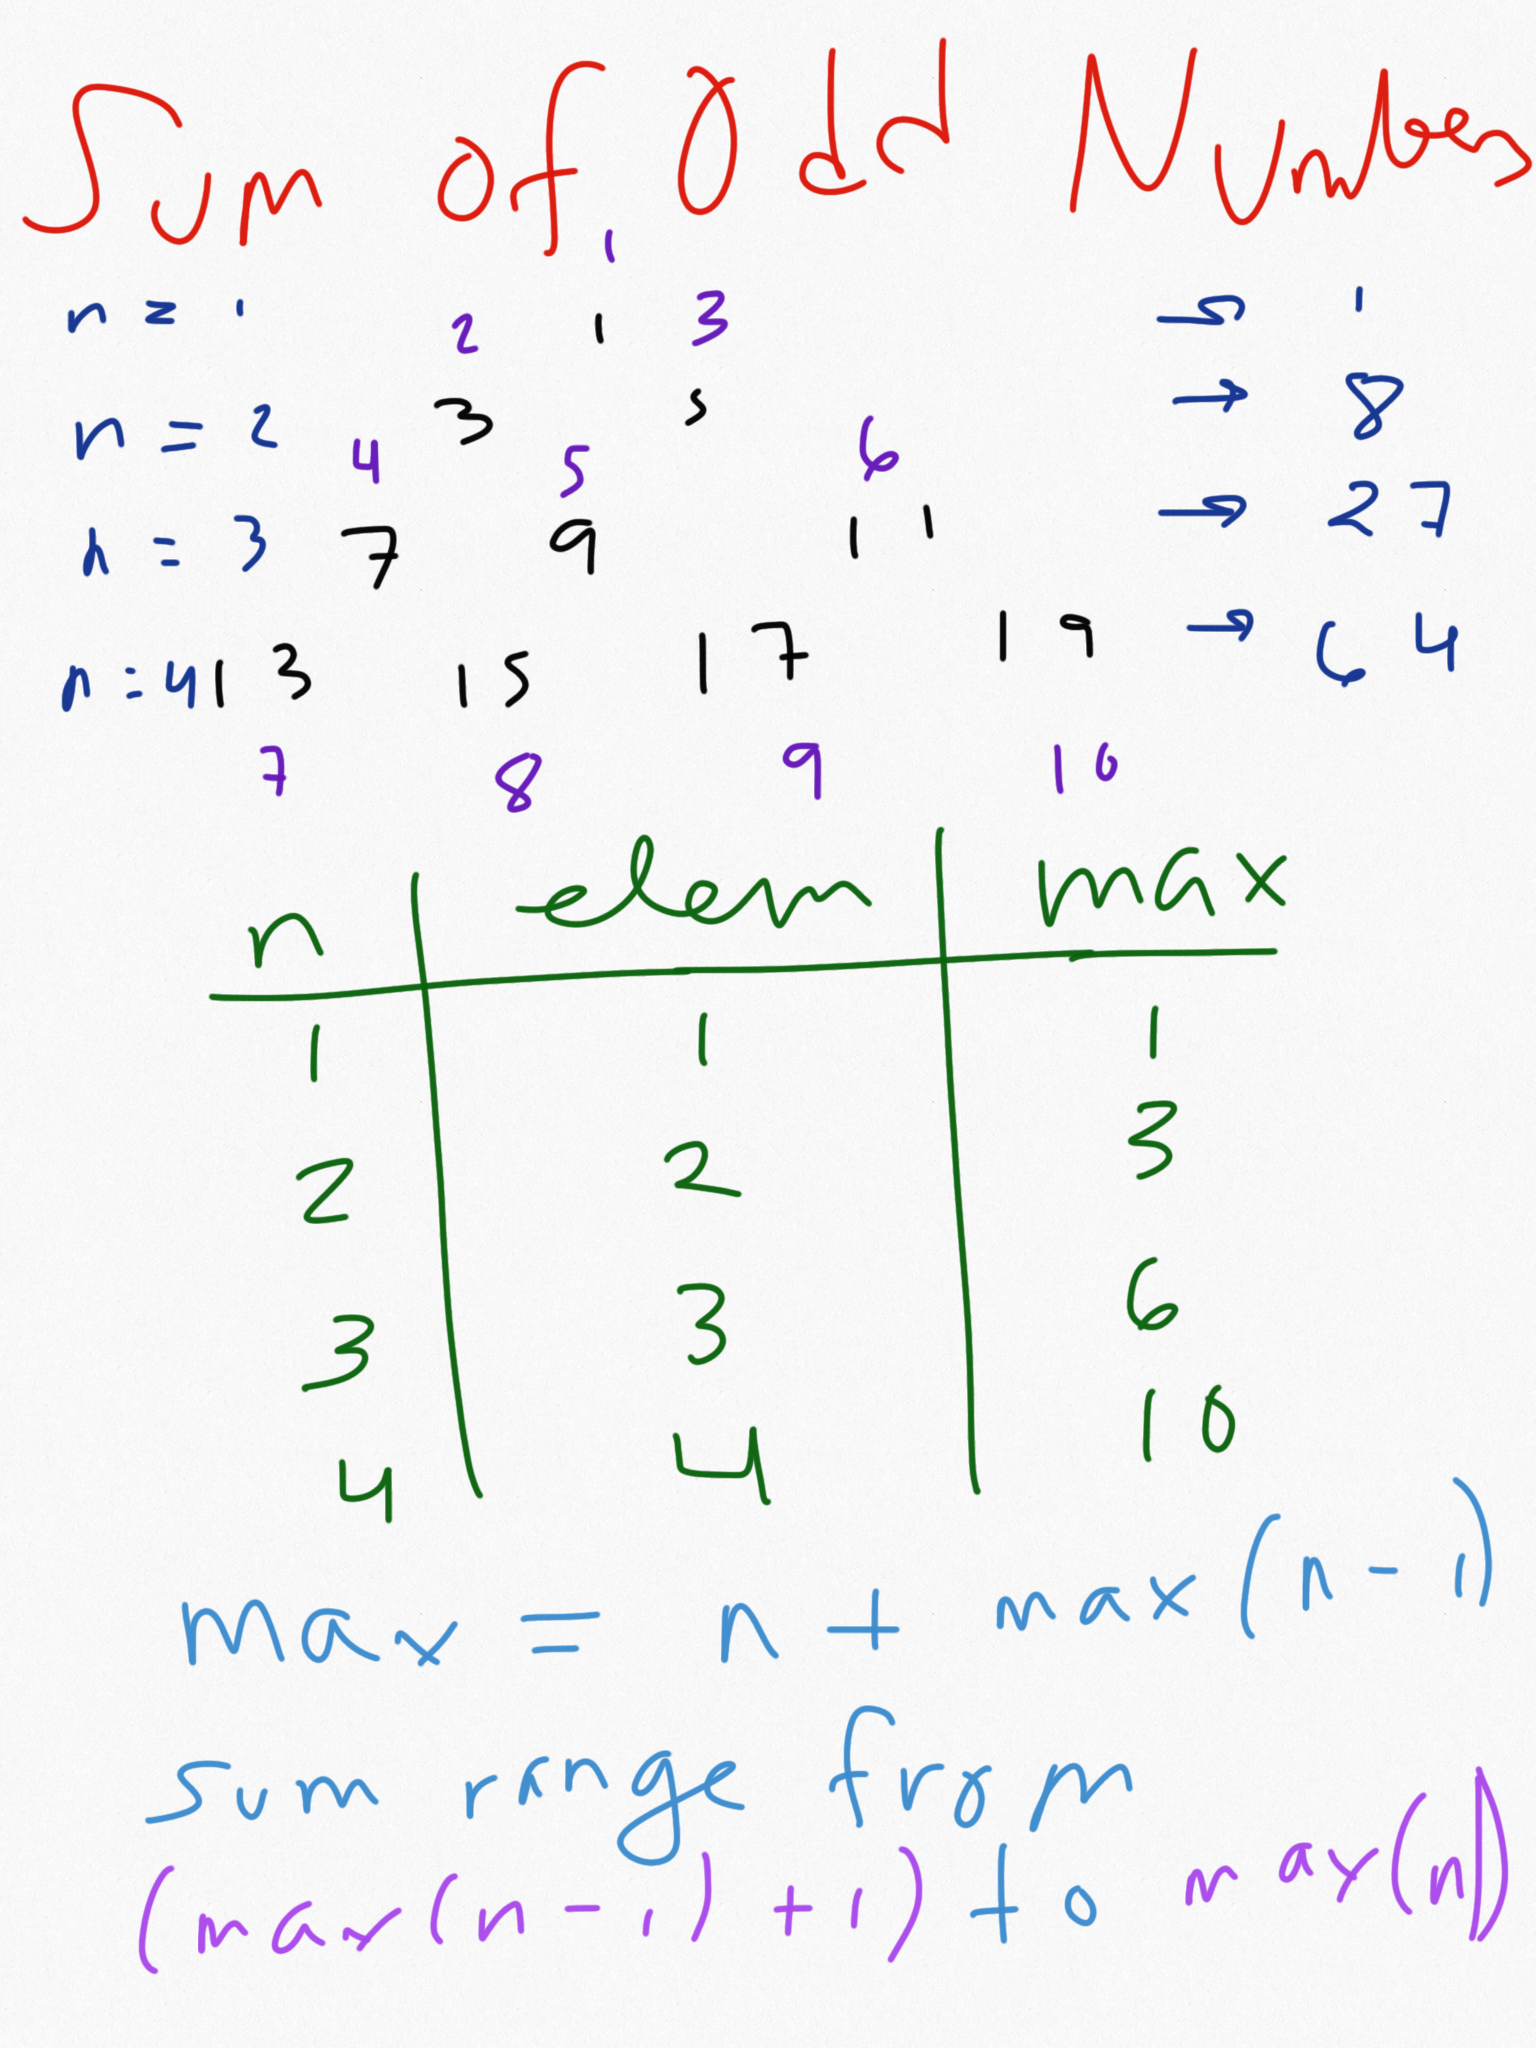 Sum of Odd Numbers
1
n = 1 1 → 1
2 3
n = 2 3 5 → 8
4 5 6
n = 3 7 9 11 → 27
n = 4 13 15 17 19 → 64
7 8 9 10
n elem max
1 1 1
2 2 3
3 3 6
4 4 10
max = n + max(n - 1)
sum range from
(max(n - 1) + 1) to max(n)